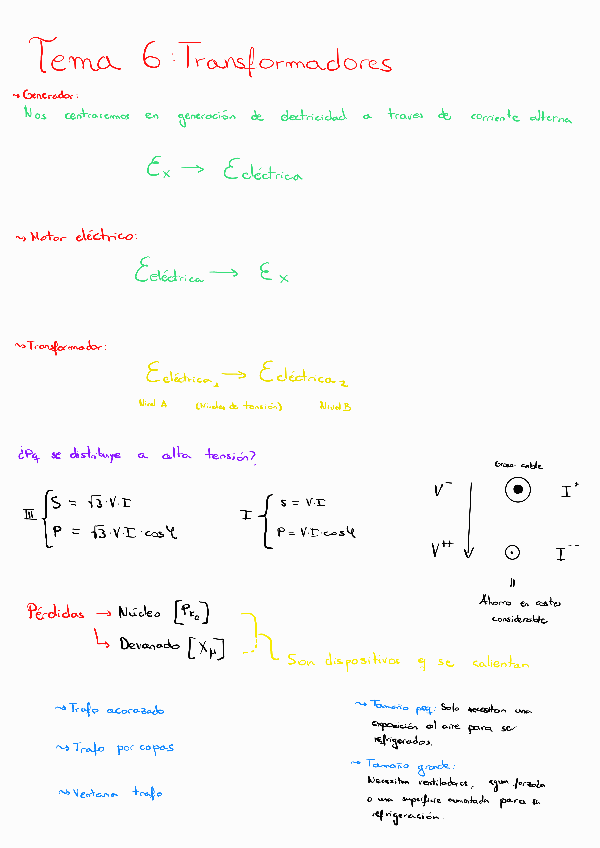 Tema 6: Transformadores
↝ Generador:
Nos centraremos en generación de electricidad a traves de corriente alterna
Ex → Eeléctrica
↝ Motor eléctrico:
Eeléctrica → Ex
↝ Transformador:
Eeléctrica1 → Eeléctrica2
Nivel A (Niveles de tensión) Nivel B
¿Pq se distribuye a alta tensión?
Grosor cable
III { S = √3·V·I
P = √3·V·I·cosφ
I { S = V·I
P = V·I·cosφ
V⁻ I⁺
V⁺⁺ I⁻⁻
Ahorro en costes
considerable
Pérdidas → Núcleo
↳ Devanado [Xμ]
Son dispositivos q se calientan
↝ Trafo acorazado
↝ Trafo por capas
↝ Ventana trafo
↝ Tamaño peq: Solo necesitan una
exposición al aire para ser
refrigerados.
↝ Tamaño grande:
Necesitan ventiladores, agua forzada
o una superficie aumentada para su
refrigeración.